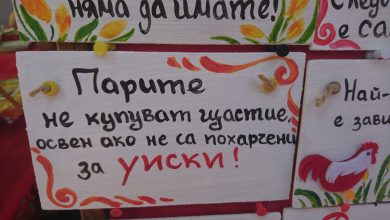 няма да имате!
Парите
не купуват щастие,
освен ако не са похарчени
за УИСКИ!
е са
Най-
е зави